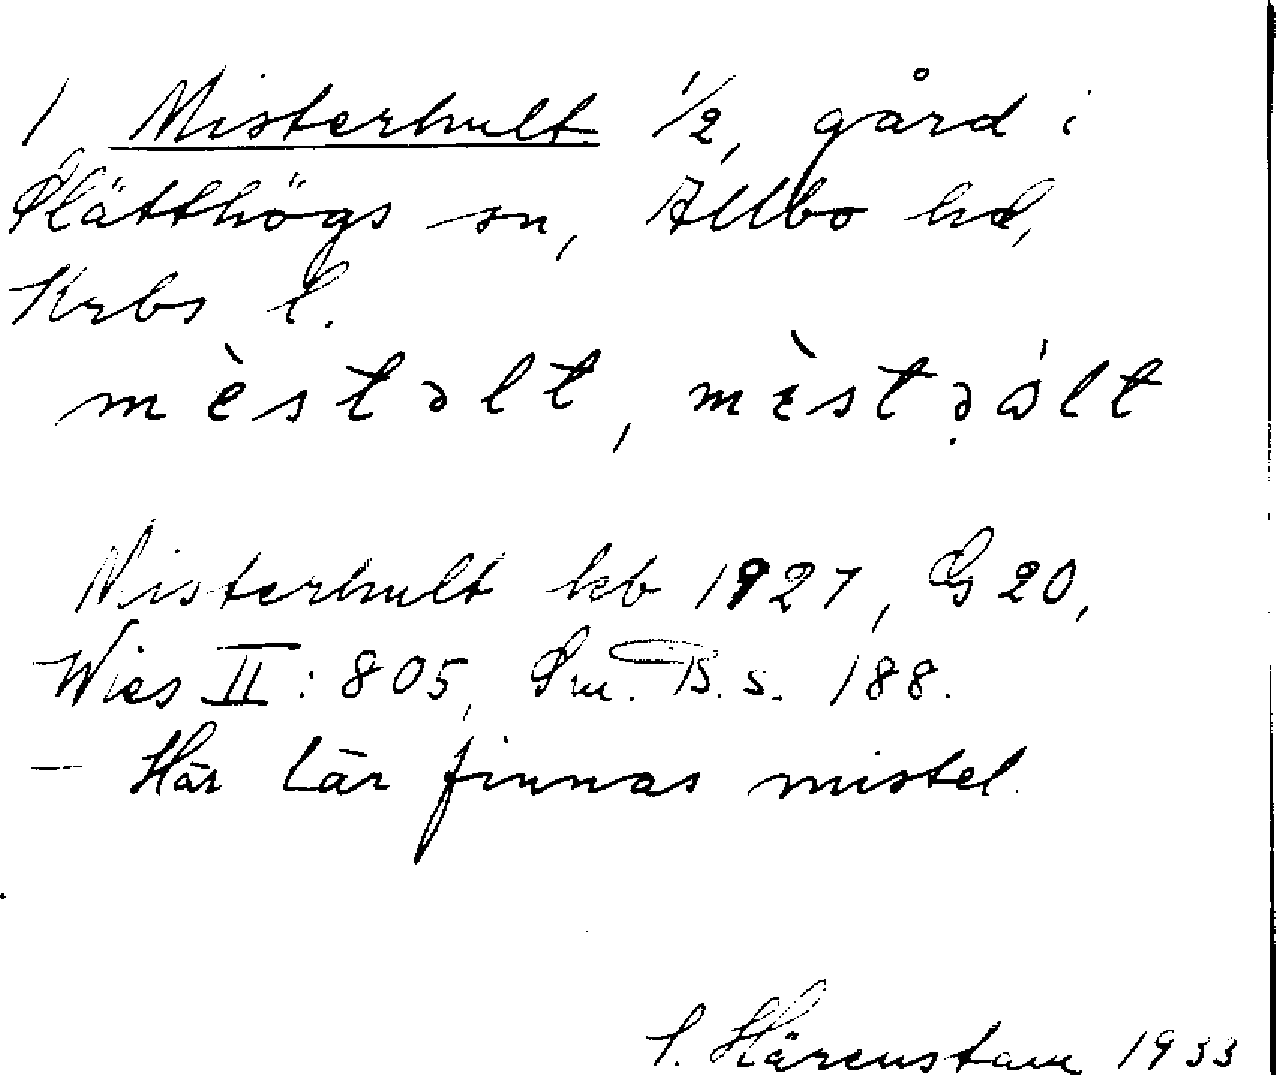 1 Misterhult 1/2, gård i
Slätthögs sn, Allbo hd,
Krbs l.
mèstəlt, mèstə̣ált
Misterhult kb 1927, G 20,
Wies II: 805, Sm. B. s. 188.
– Här lär finnas mistel.
S. Härenstam 1933